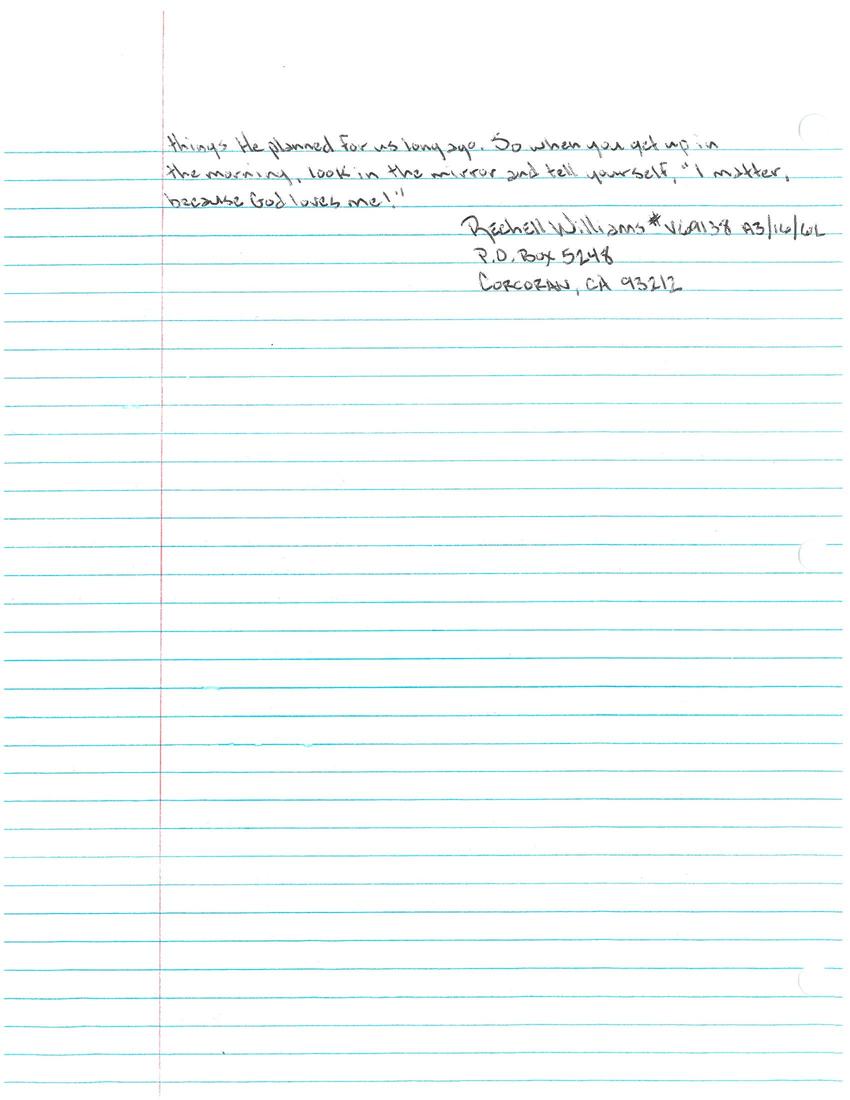 things He planned for us long ago. So when you get up in
the morning, look in the mirror and tell yourself, "I matter,
because God loves me!"
Rechell Williams # V69138 A3/16/6L
P.O. Box 5248
Corcoran, CA 93212